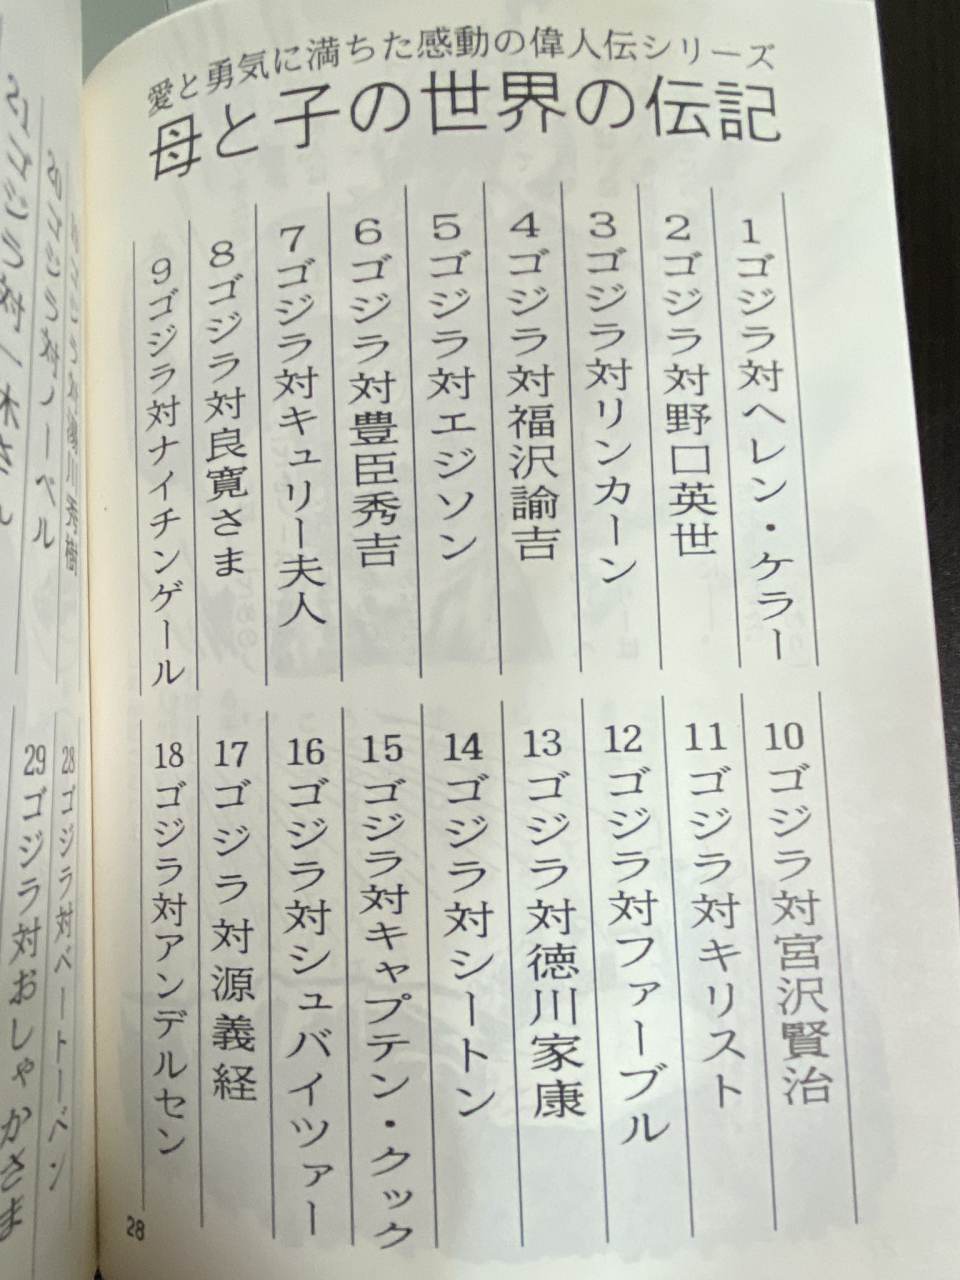 愛と勇気に満ちた感動の偉人伝シリーズ
母と子の世界の伝記
1ゴジラ対ヘレン・ケラー
2ゴジラ対野口英世
3ゴジラ対リンカーン
4ゴジラ対福沢諭吉
5ゴジラ対エジソン
6ゴジラ対豊臣秀吉
7ゴジラ対キュリー夫人
8ゴジラ対良寛さま
9ゴジラ対ナイチンゲール
10ゴジラ対宮沢賢治
11ゴジラ対キリスト
12ゴジラ対ファーブル
13ゴジラ対徳川家康
14ゴジラ対シートン
15ゴジラ対キャプテン・クック
16ゴジラ対シュバイツァー
17ゴジラ対源義経
18ゴジラ対アンデルセン
28
ゴジラ対湯川秀樹
20ゴジラ対ノーベル
21ゴジラ対一休さん
28ゴジラ対ベートーベン
29ゴジラ対おしゃかさま